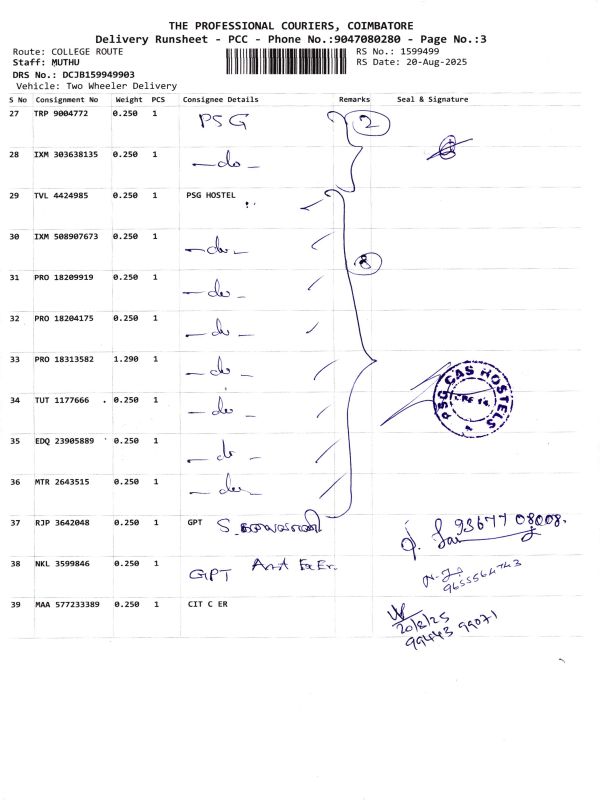 THE PROFESSIONAL COURIERS, COIMBATORE
Delivery Runsheet - PCC - Phone No.:9047080280 - Page No.:3
Route: COLLEGE ROUTE RS No.: 1599499
Staff: MUTHU RS Date: 20-Aug-2025
DRS No.: DCJB159949903
Vehicle: Two Wheeler Delivery
S No Consignment No Weight PCS Consignee Details Remarks Seal & Signature
27 TRP 9004772 0.250 1 PSG 2
28 IXM 303638135 0.250 1 -do-
29 TVL 4424985 0.250 1 PSG HOSTEL
30 IXM 508907673 0.250 1 -do- 8
31 PRO 18209919 0.250 1 -do-
32 PRO 18204175 0.250 1 -do-
33 PRO 18313582 1.290 1 -do-
PSG CAS HOSTELS
34 TUT 1177666 0.250 1 -do-
35 EDQ 23905889 0.250 1 -do-
36 MTR 2643515 0.250 1 -do-
37 RJP 3642048 0.250 1 GPT 93677 08008.
38 NKL 3599846 0.250 1 GPT
9655564743
39 MAA 577233389 0.250 1 CIT C ER
20/8/25
99443 99071